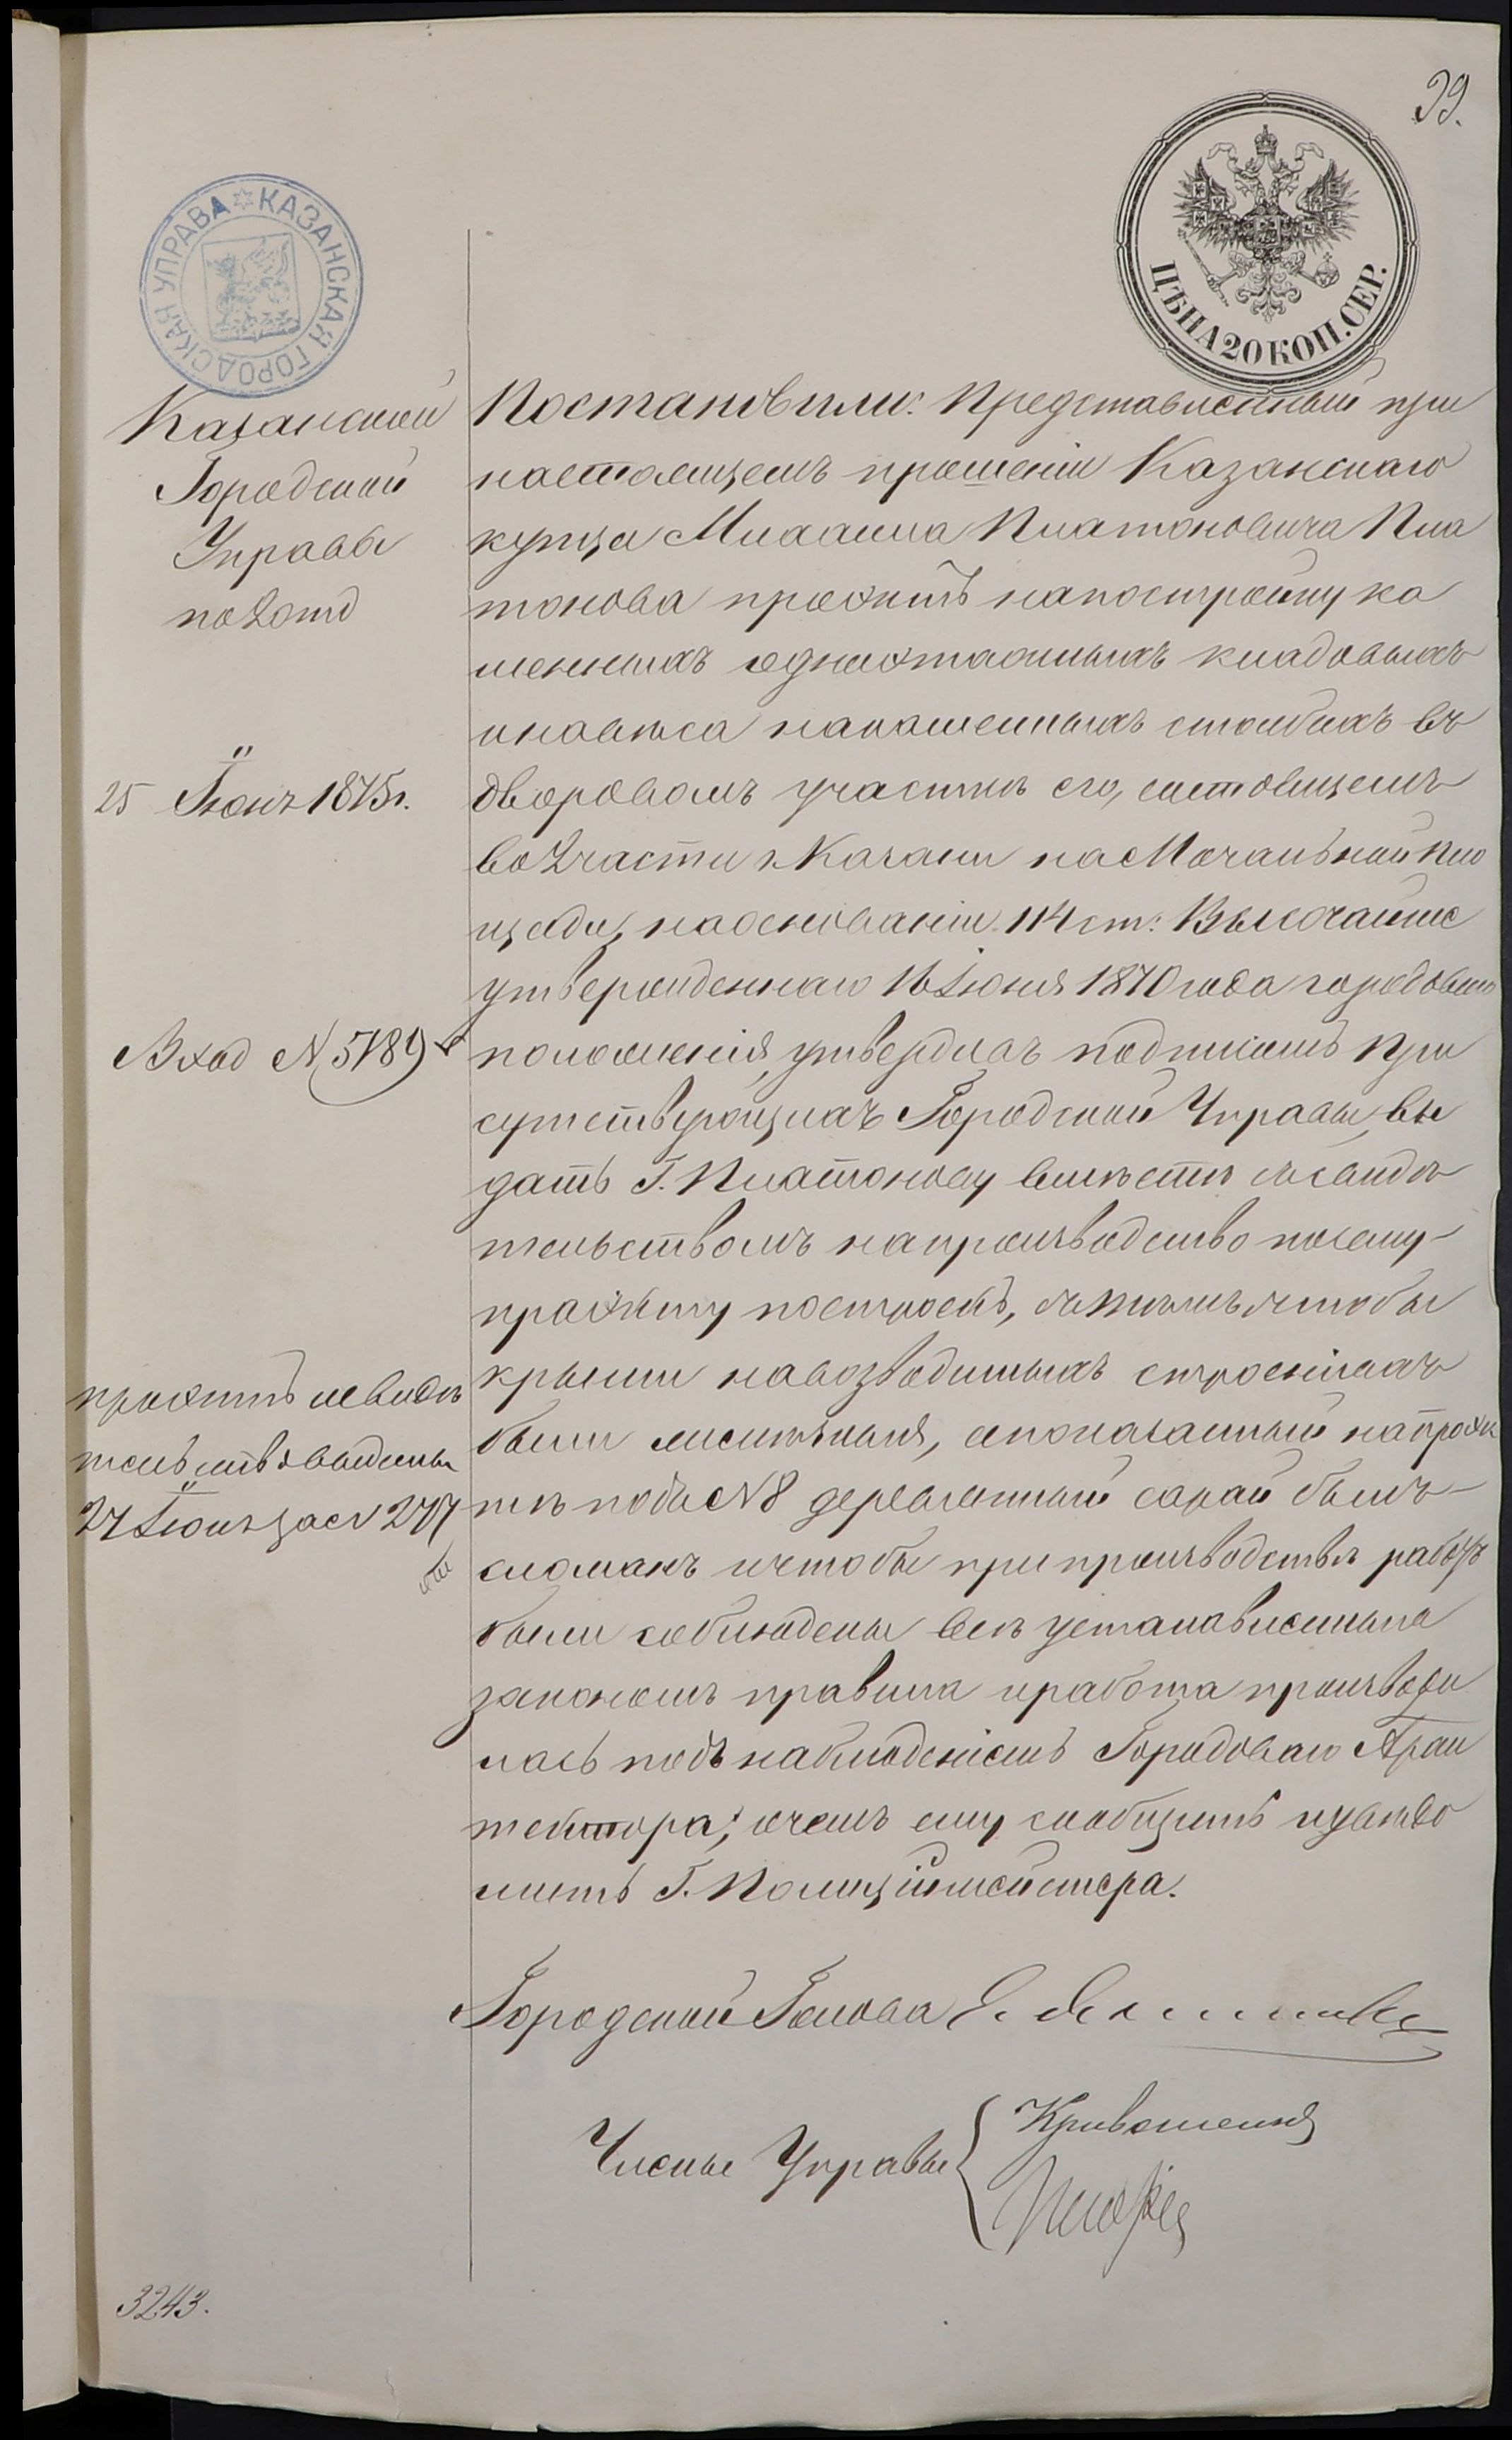 99.
КАЗАНСКАЯ ГОРОДСКАЯ УПРАВА
ЦѢНА 20 КОП. СЕР.
Казанской
Городской
Управы
по 2 отд
25 Іюня 1875 г.
Вход № 5189
проэктъ и свидѣ
тельство выданы
27 Іюня за № 277
Постановили: Представленный при
настоящемъ прошеніи Казанскаго
купца Михаила Платоновича Пла
тонова проэктъ на постройку ка
менныхъ одноэтажныхъ кладовыхъ
и навѣса на каменныхъ столбахъ въ
дворовомъ участкѣ его, состоящемъ
во 2 части г. Казани на Мочальной пло
щади, на основаніи 114 ст: Высочайше
утвержденнаго 16 Іюня 1870 года городоваго
положенія, утвердивъ подписомъ При
сутствующихъ Городской Управы, вы
дать Г. Платонову вмѣстѣ съ свидѣ
тельствомъ на производство по сему
проэкту построекъ, съ тѣмъ чтобы
крыши на возводимыхъ строеніяхъ
были желѣзныя, а показанный на проэк
тѣ подъ № 8 деревянный сарай былъ
сломанъ и чтобы при производствѣ работъ
были соблюдены всѣ установленныя
закономъ правила и работа производи
лась подъ наблюденіемъ Городоваго Архи
тектора; о чемъ ему сообщить и увѣдо
мить Г. Полиціймейстера.
Городской Голова
Члены Управы
3243.